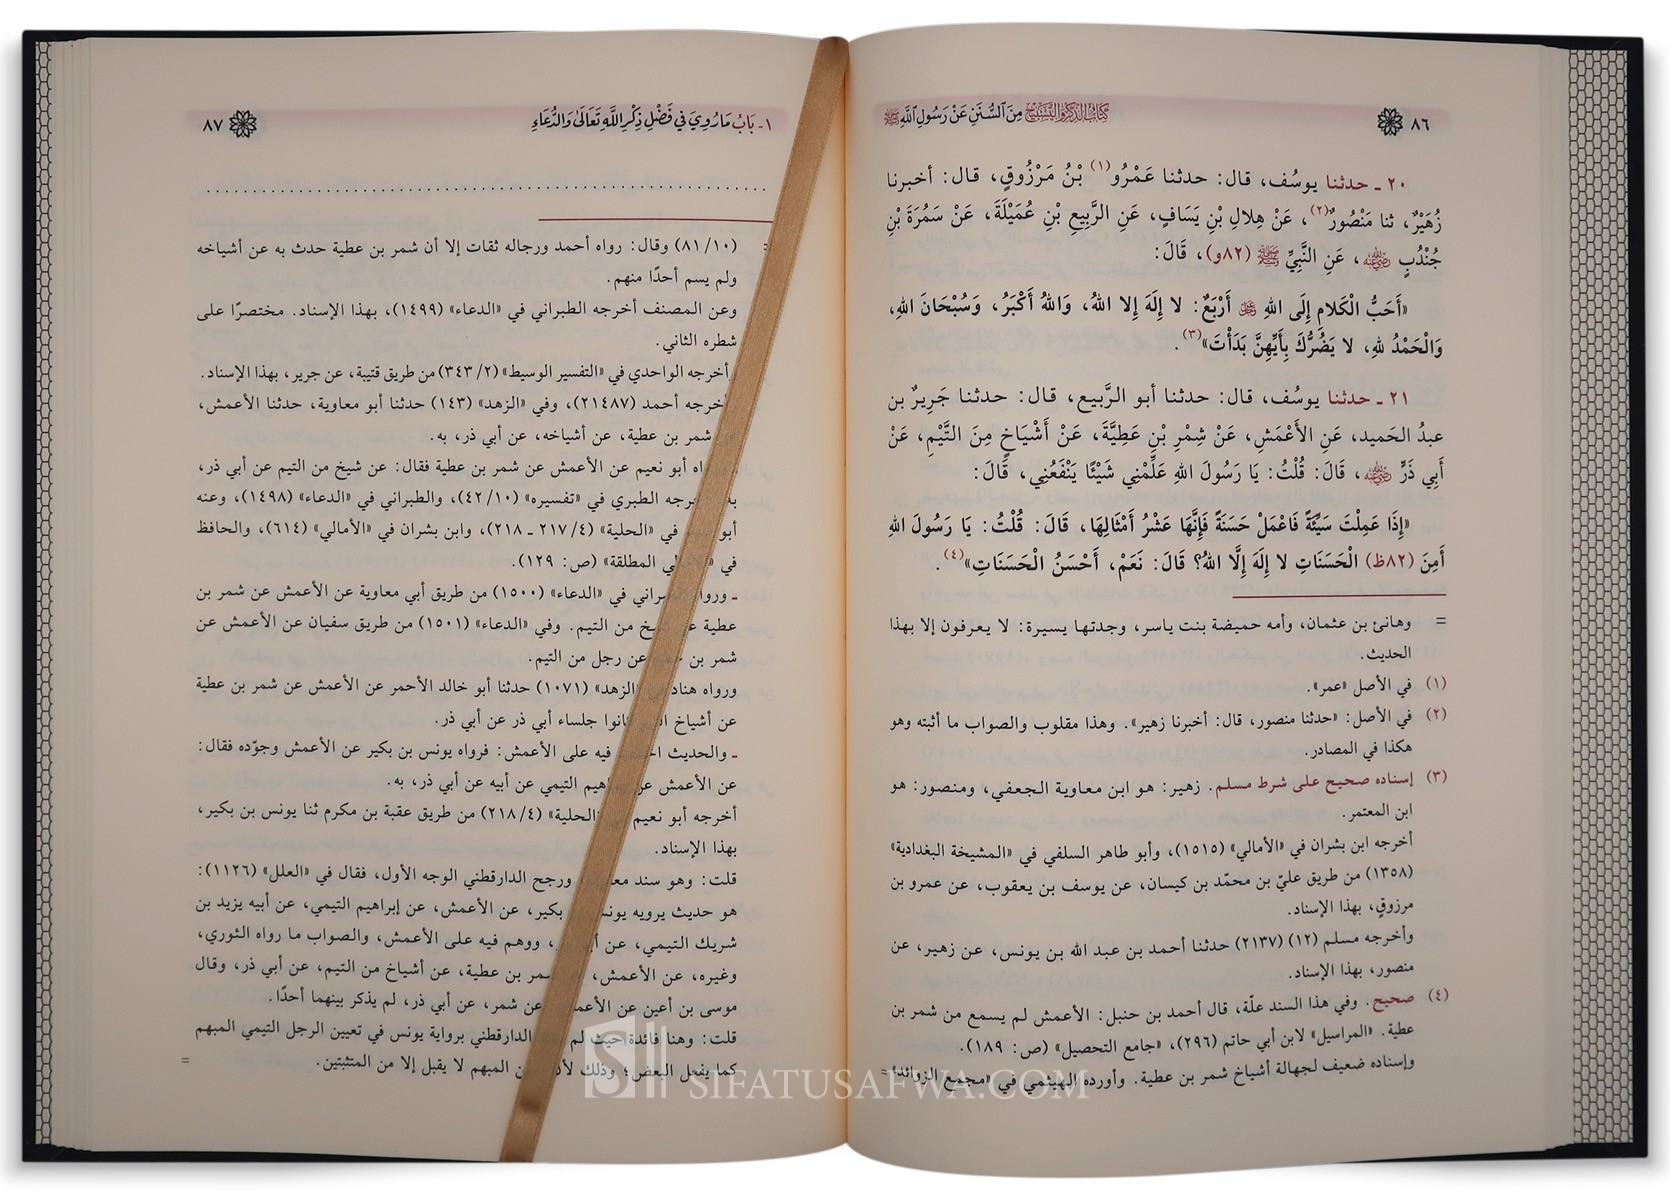 ٨٦ كتاب الذكر والتسبيح مِنَ السُّنَنِ عَنْ رَسُولِ اللَّهِ ﷺ
٢٠ ـ حدثنا يوسُف، قال: حدثنا عَمْرُو(١) بْنُ مَرْزُوقٍ، قال: أخبرنا
زُهَيْرٌ، ثنا مَنْصُورٌ(٢)، عَنْ هِلالِ بْنِ يَسَافٍ، عَنِ الرَّبِيعِ بْنِ عُمَيْلَةَ، عَنْ سَمُرَةَ بْنِ
جُنْدُبٍ رضي الله عنه، عَنِ النَّبِيِّ ﷺ (٨٢و)، قَالَ:
«أَحَبُّ الْكَلامِ إِلَى اللهِ ﷻ أَرْبَعٌ: لا إِلَهَ إِلا اللهُ، وَاللهُ أَكْبَرُ، وَسُبْحَانَ اللهِ،
وَالْحَمْدُ للهِ، لا يَضُرُّكَ بِأَيِّهِنَّ بَدَأْتَ»(٣).
٢١ ـ حدثنا يوسُف، قال: حدثنا أبو الرَّبيع، قال: حدثنا جَرِيرُ بن
عبدُ الحَميد، عَنِ الأَعْمَشِ، عَنْ شِمْرِ بْنِ عَطِيَّةَ، عَنْ أَشْيَاخٍ مِنَ التَّيْمِ، عَنْ
أَبِي ذَرٍّ رضي الله عنه، قَالَ: قُلْتُ: يَا رَسُولَ اللهِ عَلِّمْنِي شَيْئًا يَنْفَعُنِي، قَالَ:
«إِذَا عَمِلْتَ سَيِّئَةً فَاعْمَلْ حَسَنَةً فَإِنَّهَا عَشْرُ أَمْثَالِهَا، قَالَ: قُلْتُ: يَا رَسُولَ اللهِ
أَمِنَ (٨٢ظ) الْحَسَنَاتِ لا إِلَهَ إِلَّا اللهُ؟ قَالَ: نَعَمْ، أَحْسَنُ الْحَسَنَاتِ»(٤).
= وهانئ بن عثمان، وأمه حميضة بنت ياسر، وجدتها يسيرة: لا يعرفون إلا بهذا
الحديث.
(١) في الأصل «عمر».
(٢) في الأصل: «حدثنا منصور، قال: أخبرنا زهير». وهذا مقلوب والصواب ما أثبته وهو
هكذا في المصادر.
(٣) إسناده صحيح على شرط مسلم. زهير: هو ابن معاوية الجعفي، ومنصور: هو
ابن المعتمر.
أخرجه ابن بشران في «الأمالي» (١٥١٥)، وأبو طاهر السلفي في «المشيخة البغدادية»
(١٣٥٨) من طريق عليّ بن محمّد بن كيسان، عن يوسف بن يعقوب، عن عمرو بن
مرزوق، بهذا الإسناد.
وأخرجه مسلم (١٢) (٢١٣٧) حدثنا أحمد بن عبد الله بن يونس، عن زهير، عن
منصور، بهذا الإسناد.
(٤) صحيح. وفي هذا السند علّة، قال أحمد بن حنبل: الأعمش لم يسمع من شمر بن
عطية. «المراسيل» لابن أبي حاتم (٢٩٦)، «جامع التحصيل» (ص: ١٨٩).
وإسناده ضعيف لجهالة أشياخ شمر بن عطية. وأورده الهيثمي في «مجمع الزوائد» =
١ـ بَابُ مَا رُوِيَ فِي فَضْلِ ذِكْرِ اللَّهِ تَعَالَى وَالدُّعَاءِ ٨٧
= (٨١/١٠) وقال: رواه أحمد ورجاله ثقات إلا أن شمر بن عطية حدث به عن أشياخه
ولم يسم أحدًا منهم.
وعن المصنف أخرجه الطبراني في «الدعاء» (١٤٩٩)، بهذا الإسناد. مختصرًا على
شطره الثاني.
وأخرجه الواحدي في «التفسير الوسيط» (٣٤٣/٢) من طريق قتيبة، عن جرير، بهذا الإسناد.
وأخرجه أحمد (٢١٤٨٧)، وفي «الزهد» (١٤٣) حدثنا أبو معاوية، حدثنا الأعمش،
شمر بن عطية، عن أشياخه، عن أبي ذر، به.
أبو نعيم عن الأعمش عن شمر بن عطية فقال: عن شيخ من التيم عن أبي ذر،
الطبري في «تفسيره» (٤٢/١٠)، والطبراني في «الدعاء» (١٤٩٨)، وعنه
أبو في «الحلية» (٢١٧/٤ ـ ٢١٨)، وابن بشران في «الأمالي» (٦١٤)، والحافظ
في المطلقة» (ص: ١٢٩).
ـ ورواه الطبراني في «الدعاء» (١٥٠٠) من طريق أبي معاوية عن الأعمش عن شمر بن
عطية عن شيخ من التيم. وفي «الدعاء» (١٥٠١) من طريق سفيان عن الأعمش عن
شمر بن عطية عن رجل من التيم.
ورواه هناد في «الزهد» (١٠٧١) حدثنا أبو خالد الأحمر عن الأعمش عن شمر بن عطية
عن أشياخ كانوا جلساء أبي ذر عن أبي ذر.
ـ والحديث فيه على الأعمش: فرواه يونس بن بكير عن الأعمش وجوّده فقال:
عن الأعمش عن إبراهيم التيمي عن أبيه عن أبي ذر، به.
أخرجه أبو نعيم في «الحلية» (٢١٨/٤) من طريق عقبة بن مكرم ثنا يونس بن بكير،
بهذا الإسناد.
قلت: وهو سند ورجح الدارقطني الوجه الأول، فقال في «العلل» (١١٢٦):
هو حديث يرويه يونس بن بكير، عن الأعمش، عن إبراهيم التيمي، عن أبيه يزيد بن
شريك التيمي، عن أبي ذر، ووهم فيه على الأعمش، والصواب ما رواه الثوري،
وغيره، عن الأعمش، عن شمر بن عطية، عن أشياخ من التيم، عن أبي ذر، وقال
موسى بن أعين عن الأعمش عن شمر، عن أبي ذر، لم يذكر بينهما أحدًا.
قلت: وهنا فائدة حيث لم الدارقطني برواية يونس في تعيين الرجل التيمي المبهم
كما يفعل البعض؛ وذلك لأن المبهم لا يقبل إلا من المتثبتين. =
SIFATUSAFWA.COM